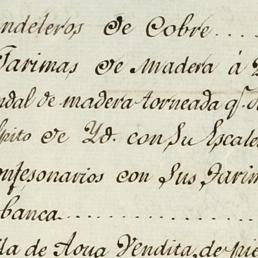 ndeleros de Cobre....
Tarimas de Madera á
ndal de madera torneada q.e
lpito de Yd. con Su Escale
onfesonarios con Sus Tarim
banca..............
lla de Agua Vendita, de pie